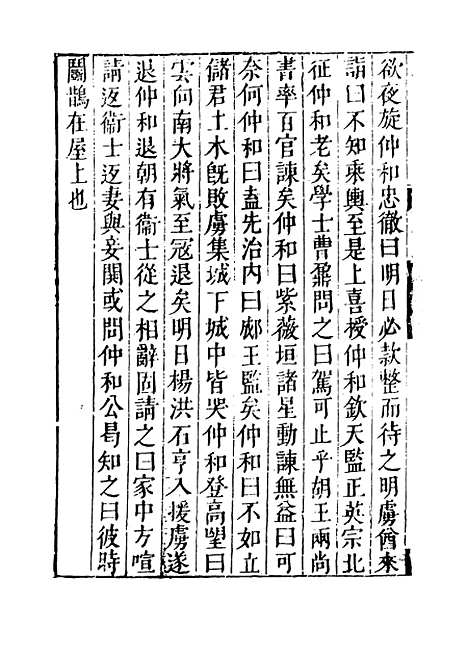 欲夜旋仲和忠徹曰明日必款整而待之明虜酋來
請曰不知乘輿至是上喜授仲和欽天監正英宗北
征仲和老矣學士曹鼐問之曰駕可止乎胡王兩尚
書率百官諫矣仲和曰紫薇垣諸星動諫無益曰可
奈何仲和曰盍先治内曰郕王監矣仲和曰不如立
儲君土木旣敗虜集城下城中皆哭仲和登高望曰
雲向南大將氣至寇退矣明日楊洪石亨入援虜遂
退仲和退朝有衞士從之相辭固請之曰家中方喧
請返衞士返妻與妾鬨或問仲和公曷知之曰彼時
鬭鵲在屋上也